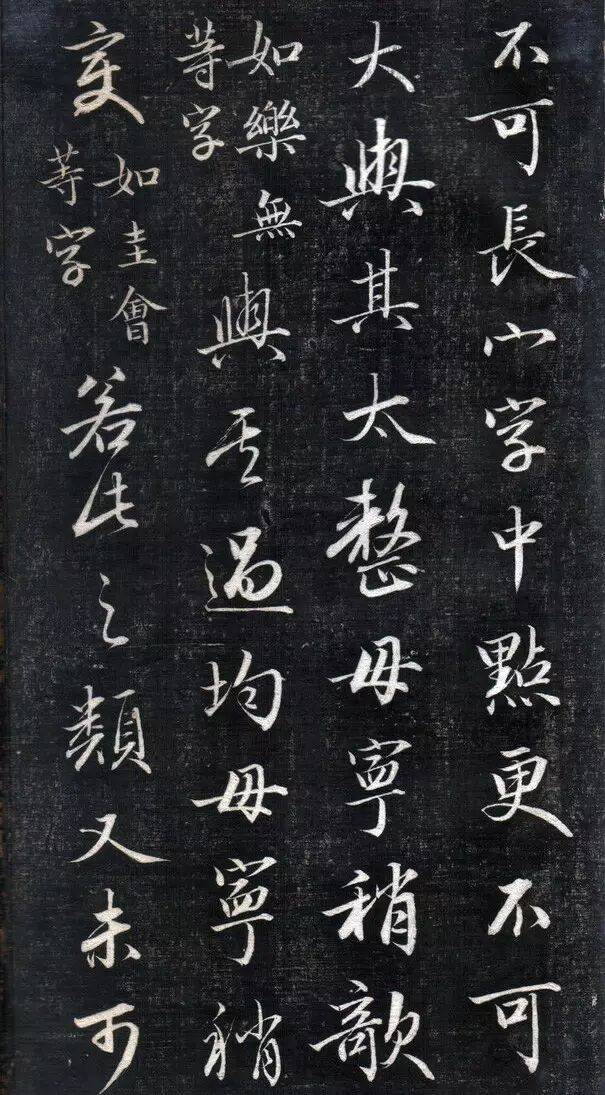 不可長心字中點更不可
大與其太整毋寧稍欹
如樂無
等字
與其過均毋寧稍
變
如圭會
等字
若此之類又未可